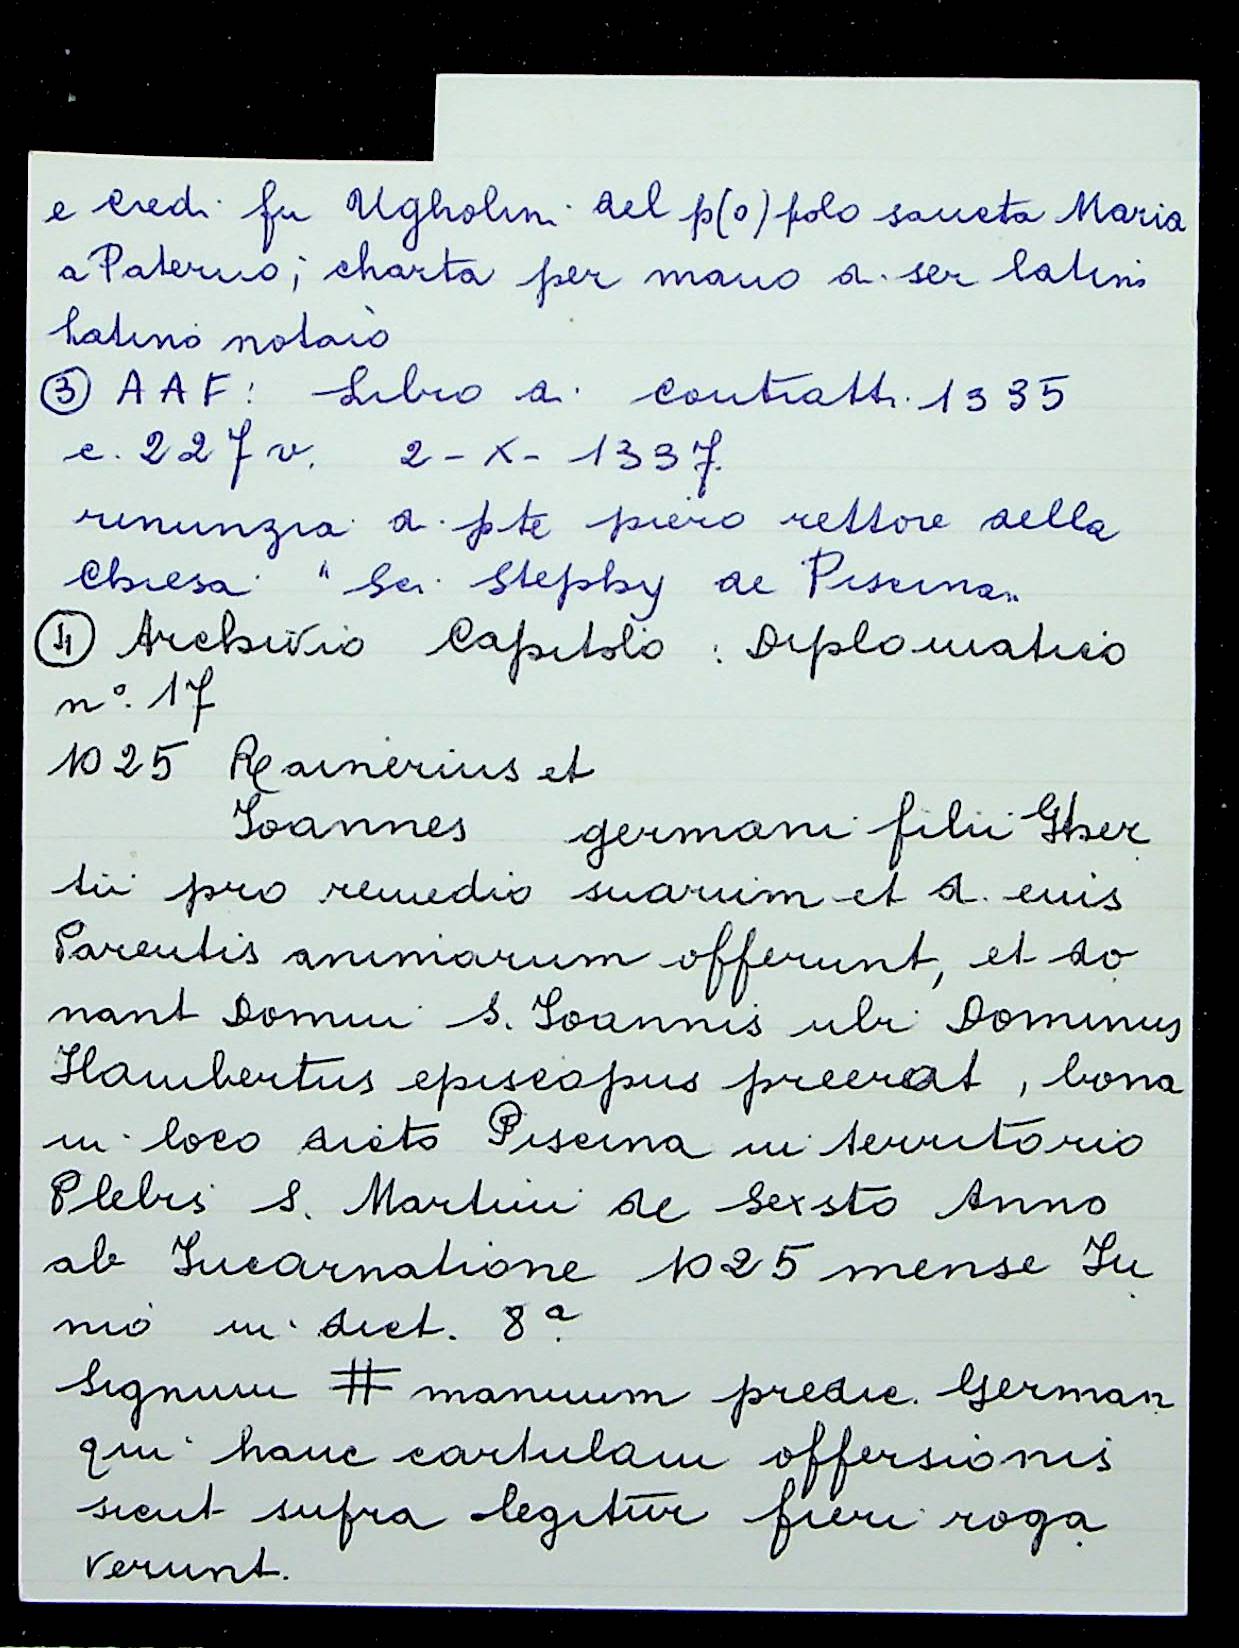 e eredi fu Ugholini del p(o)polo sancta Maria
a Paterno; charta per mano di ser latini
latino notaio
③ AAF: Libro di contratti 1335
c. 227 v. 2-X-1337.
renunzia di pte piero rettore della
chiesa "Sci Stephy de Piscina"
④ Archivio Capitolo: Diplomatico
n°. 17
1025 Rainerius et
Ioannes germani filii Gher
tii pro remedio suarum et d. euis
Parentis animarum offerunt, et do
nant Domui S. Ioannis ubi Dominus
Ilambertus episcopus preerat, bona
in loco dicto Piscina in territorio
Plebis S. Martini de Sexsto Anno
ab Incarnatione 1025 mense Iu
nio indict. 8ª
Signum # manuum predic. German
qui hanc cartulam offersionis
sicut supra legitur fieri roga
verunt.